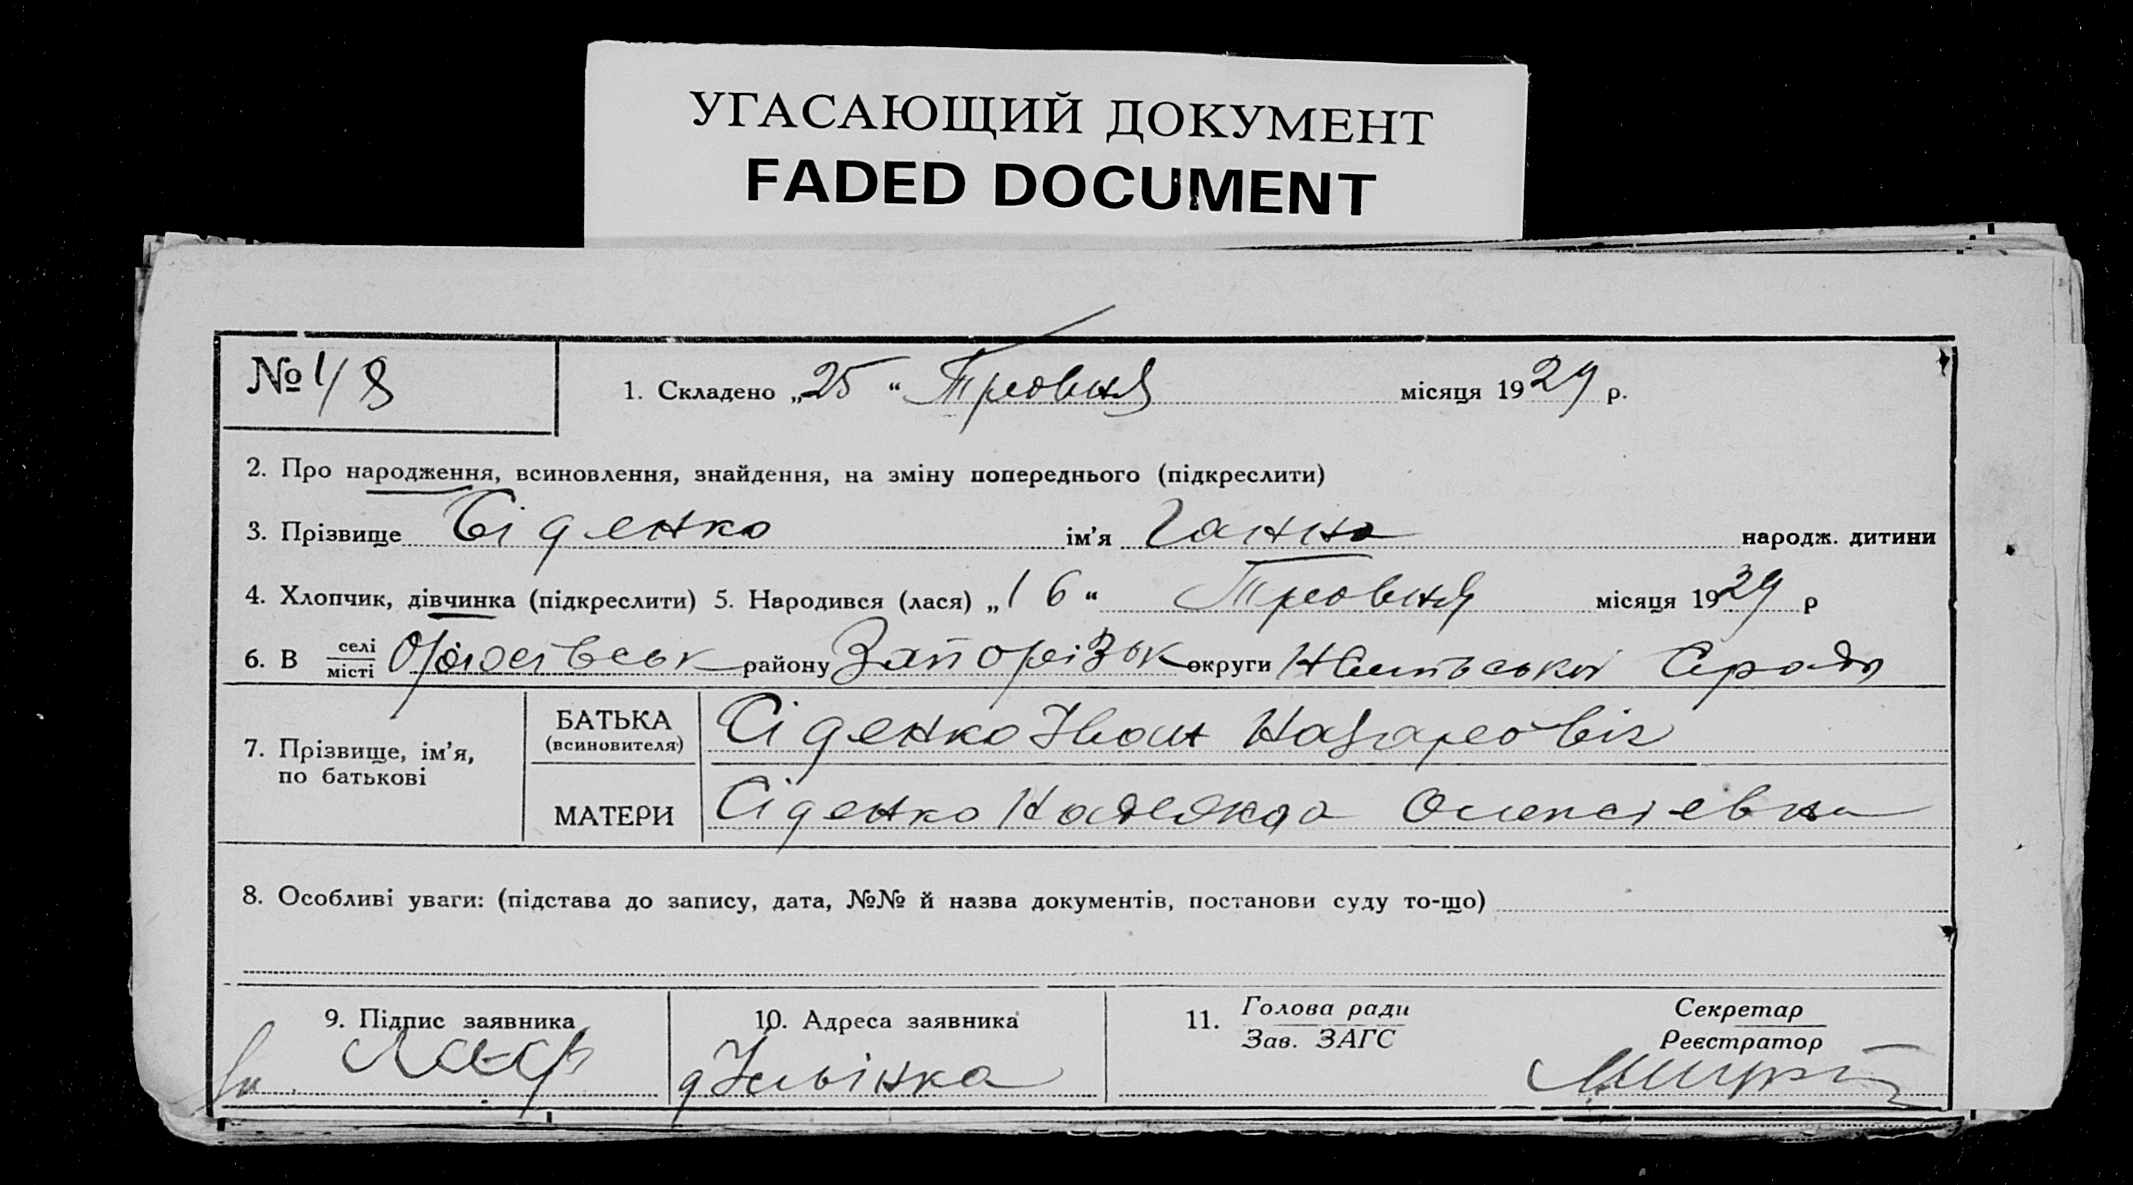 УГАСАЮЩИЙ ДОКУМЕНТ
FADED DOCUMENT
№ 1. Складено „25“ Травня місяця 1929 р.
2. Про народження, всиновлення, знайдення, на зміну попереднього (підкреслити)
3. Прізвище Сіденко ім’я Ганна народж. дитини
4. Хлопчик, дівчинка (підкреслити) 5. Народився (лася) „16“ Травня місяця 1929 р
6. В селі
місті району Запорізьк округи
7. Прізвище, ім’я,
по батькові
БАТЬКА
(всиновителя)
Сіденко Іван Назарович
МАТЕРИ
Сіденко Надежда Олексіевна
8. Особливі уваги: (підстава до запису, дата, №№ й назва документів, постанови суду то-що)
9. Підпис заявника
10. Адреса заявника
11. Голова ради
Зав. ЗАГС
Секретар
Реєстратор